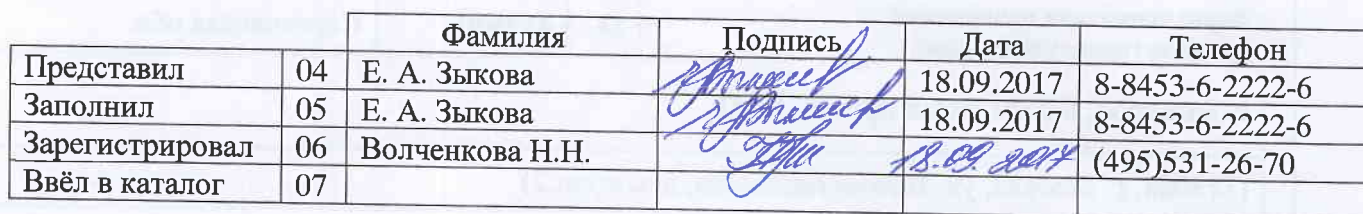 Фамилия Подпись Дата Телефон
Представил 04 Е. А. Зыкова 18.09.2017 8-8453-6-2222-6
Заполнил 05 Е. А. Зыкова 18.09.2017 8-8453-6-2222-6
Зарегистрировал 06 Волченкова Н.Н. 18.09.2017 (495)531-26-70
Ввёл в каталог 07